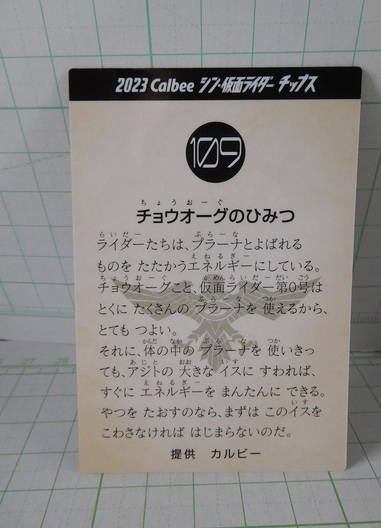 2023 Calbee シン・仮面ライダー チップス
109
チョウオーグのひみつ
ライダーたちは、プラーナとよばれる
ものを たたかうエネルギーにしている。
チョウオーグこと、仮面ライダー第0号は
とくに たくさんの プラーナを 使えるから、
とても つよい。
それに、体の中の プラーナを 使いきっ
ても、アジトの 大きな イスに すわれば、
すぐに エネルギーを まんたんに できる。
やつを たおすのなら、まずは このイスを
こわさなければ はじまらないのだ。
提供 カルビー